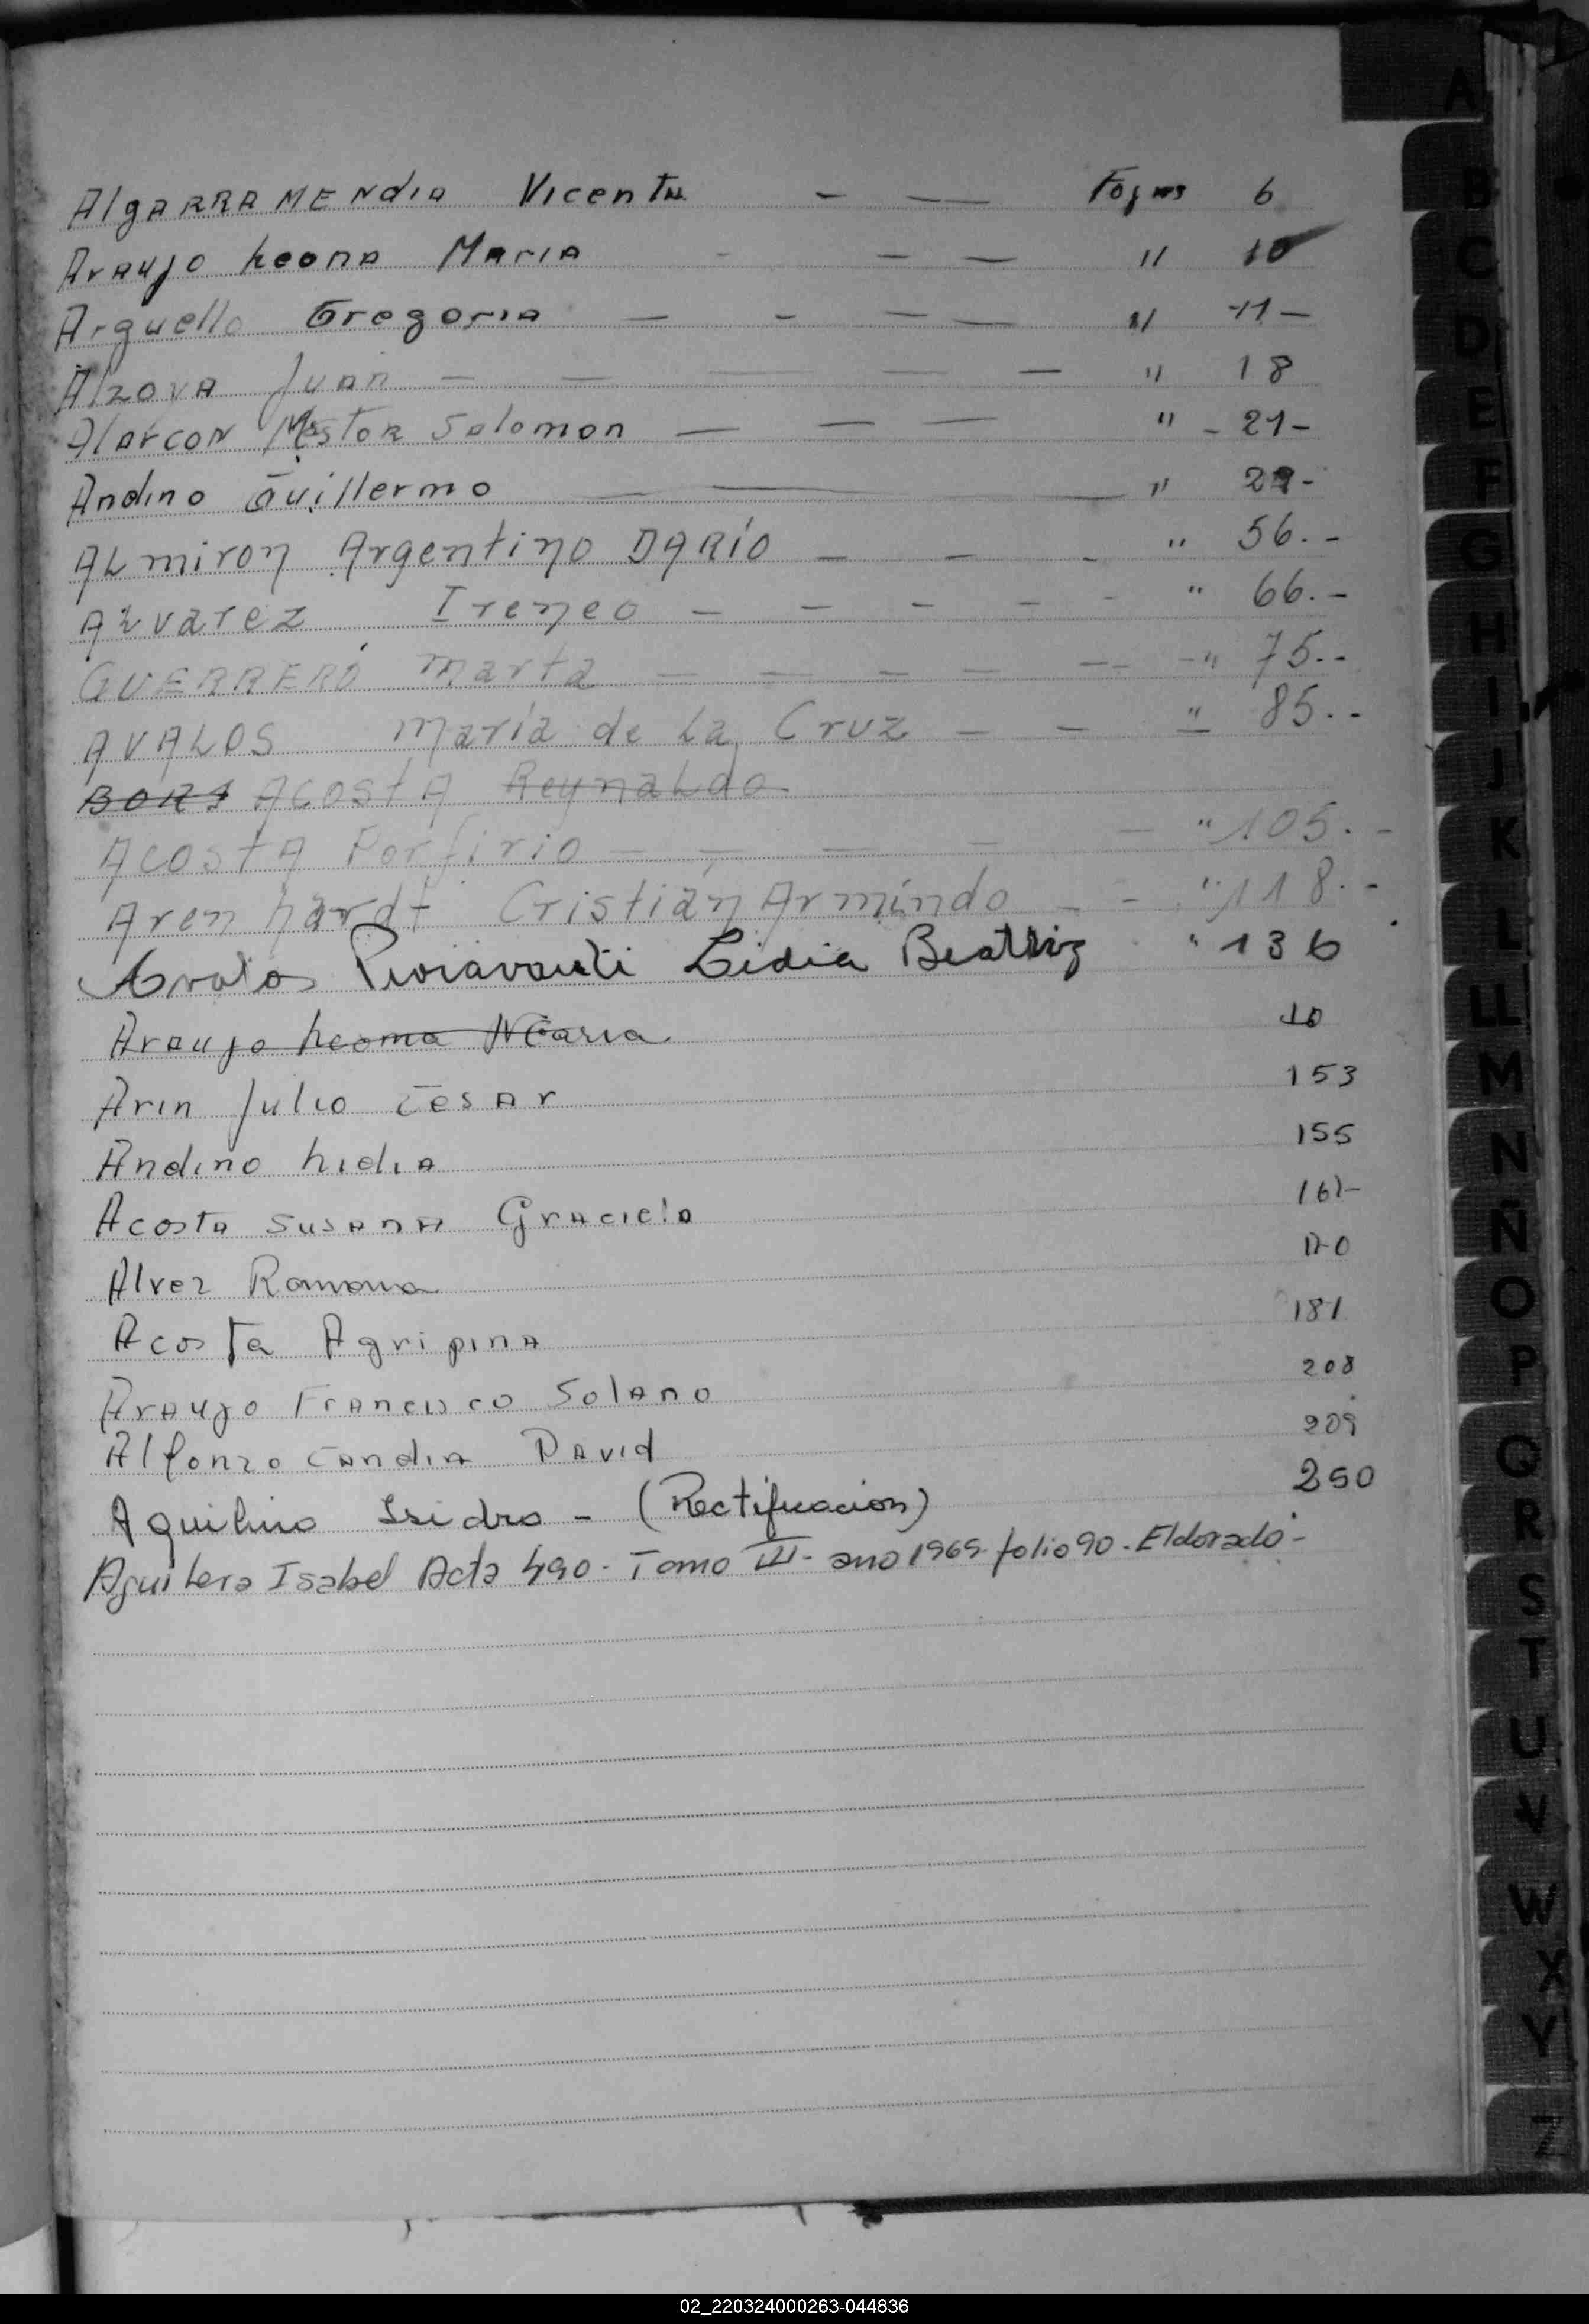 AlgARRAMENdiA Vicenta - — Fojas 6
Araujo Leona Maria - — — " 10
Arguello Gregoria — - — — " 11 —
Alzova Juan — — — — — " 18
Alarcon Nestor Salomon — — — " - 21 -
Andino Guillermo — — — " 29 -
ALmiron Argentino DARÍO — — - " 56. -
ALvarez Ireneo — - - - - " 66. -
GUERRERO marta — — — — — - " 75. -
AVALOS maría de La Cruz — — " 85. -
ACOSTA Reynaldo
ACOSTA Porfirio — — — — — " 105. -
Arenhardt Cristián Armindo — - " 118. -
Avalos Lidia Beatriz " 136
Araujo Leoma Maria 10
Arin Julio Cesar 153
Andino Lidia 155
Acosta Susana Graciela 161-
Alvez Ramona 170
Acosta Agripina 181
Araujo Francisco Solano 208
Alfonzo Candia David 209
Aquilino Isidro - (Rectificacion) 250
Aguilera Isabel Acta 490 - Tomo III - ano 1969 folio 90 - Eldorado -
A
B
C
D
E
F
G
H
I
J
K
L
LL
M
N
Ñ
O
P
Q
R
S
T
U
V
W
X
Y
Z
02_220324000263-044836